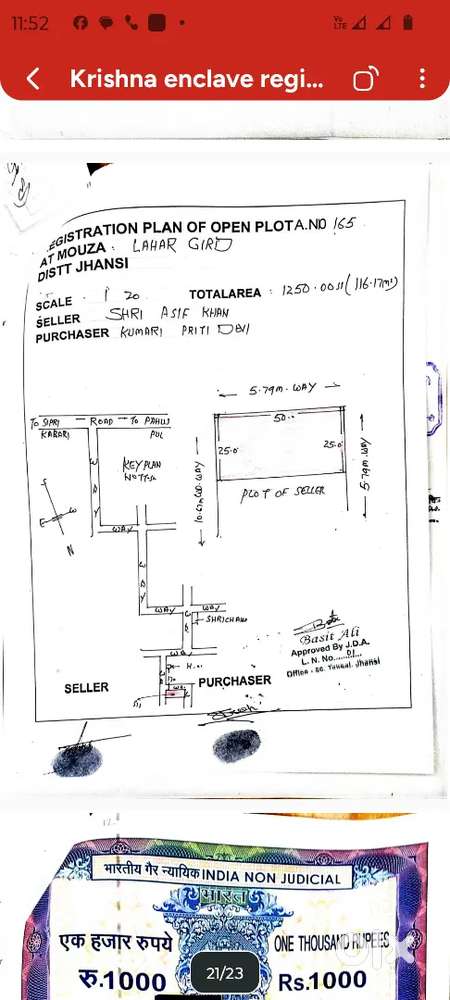 11:52
Vo
LTE
Krishna enclave regi...
EGISTRATION PLAN OF OPEN PLOTA.NO 165
AT MOUZA : LAHAR GIRD
DISTT JHANSI
SCALE . 1 20 TOTALAREA : 1250.00 (116.17
SELLER SHRI ASIF KHAN
PURCHASER KUMARI PRITI DEVI
5.79m. WAY
TO SIPRI — ROAD — TO PAHUJ
KABARI PUL
50
KEY PLAN
25.0 25.0
5.79M. WAY
WAY
PLOT OF SELLER
S
E W
N
WAY
WAY
WAY WAY
WAY
Basit Ali
Approved By J.D.A.
L. N. No. 01
Office - Sc. Tehsil, Jhansi
SELLER PURCHASER
भारतीय गैर न्यायिक INDIA NON JUDICIAL
भारत
एक हजार रुपये ONE THOUSAND RUPEES
रु.1000 21/23 Rs.1000
OLX